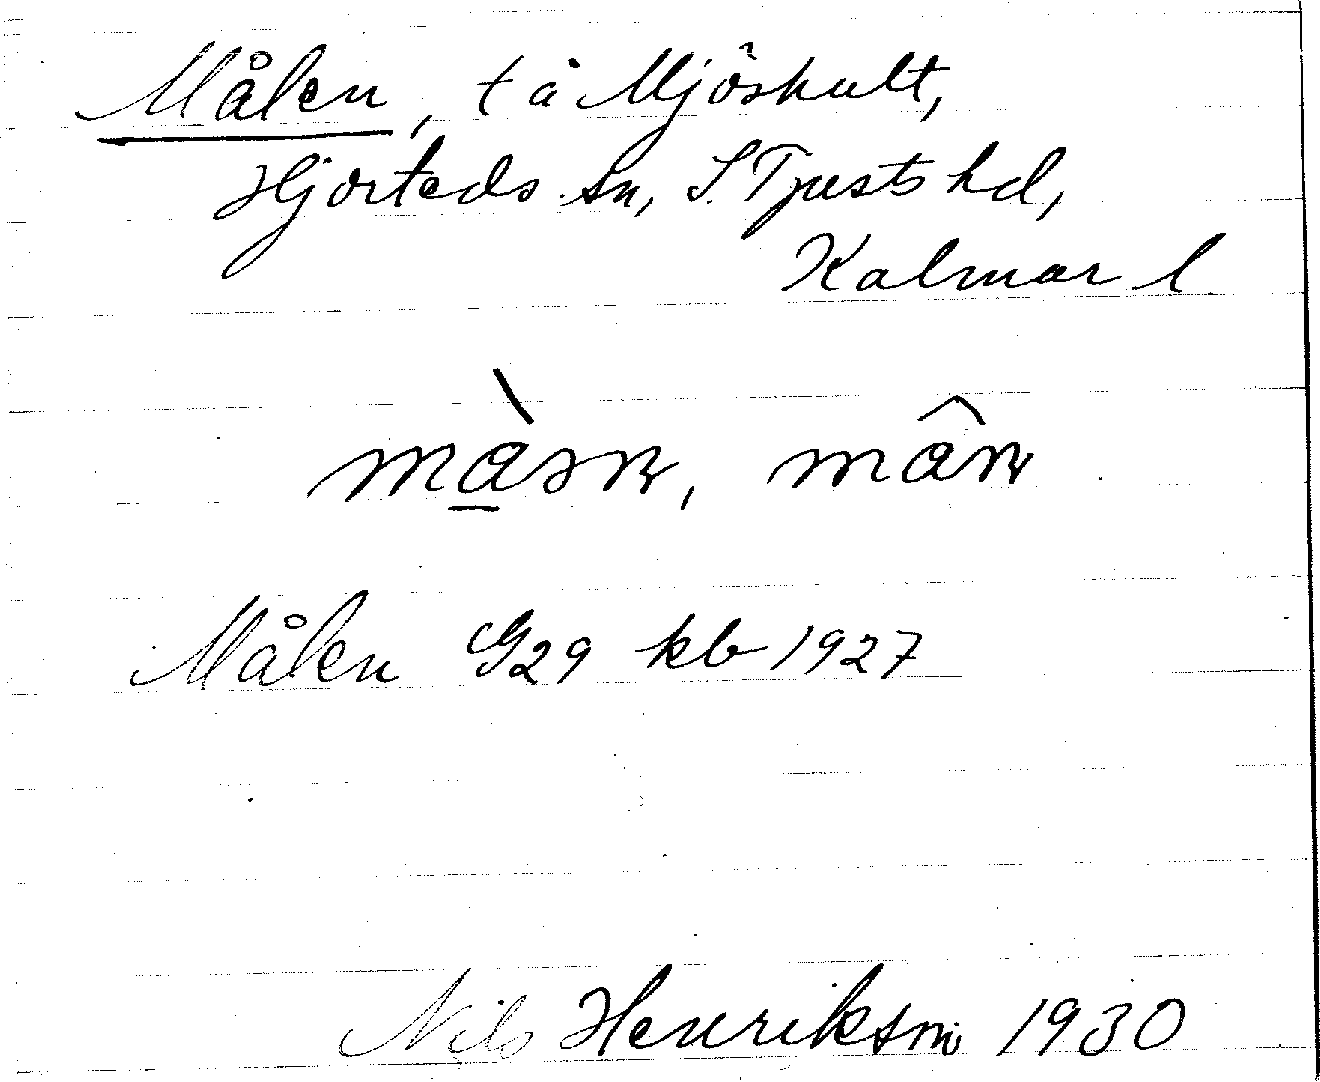 Målen, t å Mjöshult,
Hjorteds sn, S. Tjusts hd,
Kalmar l
Målen G29 kb 1927
Nils Henrikson 1930